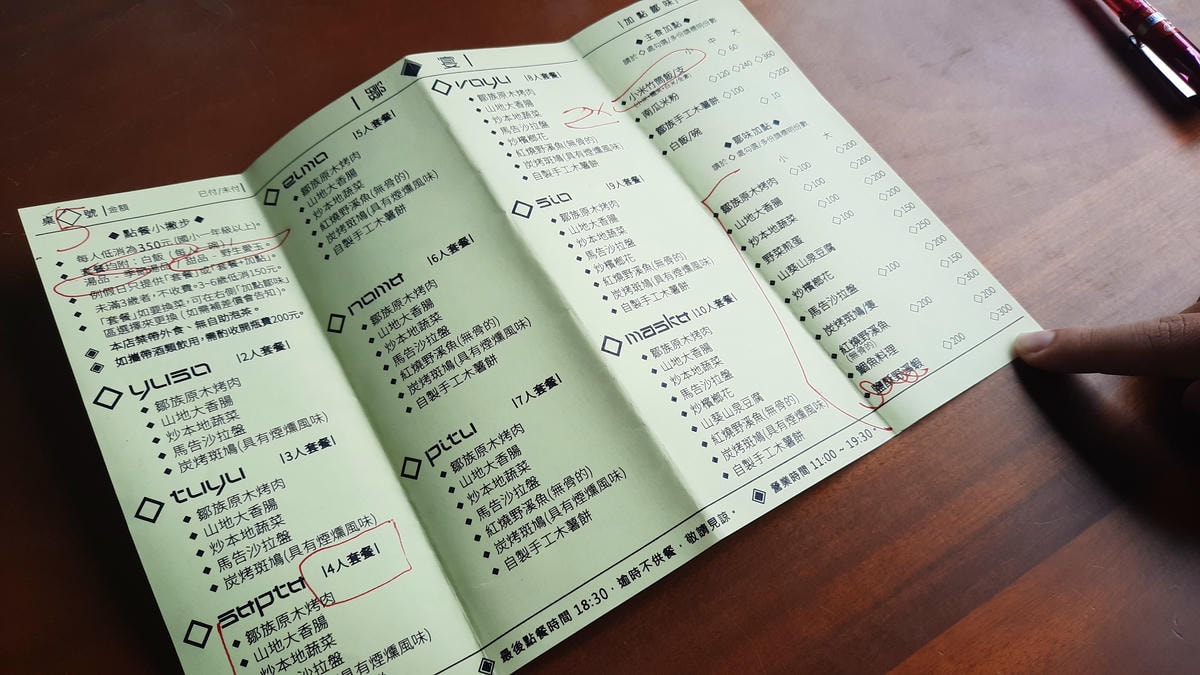 桌◇號 |金額 已付/未付|
◆點餐小撇步◆
◆ 每人低消為350元(國小一年級以上)。
例假日只提供「套餐」或「套餐+加點」。
未滿3歲者,不收費。3~6歲低消150元。
「套餐」如要換菜,可在右側「加點鄒味」
區選擇來更換(如需補差價會告知)。
◈ 本店禁帶外食、無自助泡茶。
◈ 如攜帶酒類飲用,需酌收開瓶費200元。
◇yuso |2人套餐|
◆ 鄒族原木烤肉
◆ 山地大香腸
◆ 炒本地蔬菜
◆ 馬告沙拉盤
◆ 炭烤斑鳩(具有煙燻風味)
◇tuyu |3人套餐|
◆ 鄒族原木烤肉
◆ 山地大香腸
◆ 炒本地蔬菜
◆ 馬告沙拉盤
◆ 炭烤斑鳩(具有煙燻風味)
◇sapta |4人套餐|
◆ 鄒族原木烤肉
◆ 山地大香腸
◆ 炒本地蔬菜
沙拉盤
(具有煙燻風味)
◇elmo |5人套餐|
◆ 鄒族原木烤肉
◆ 山地大香腸
◆ 炒本地蔬菜
◆ 紅燒野溪魚(無骨的)
◆ 炭烤斑鳩(具有煙燻風味)
◆ 自製手工木薯餅
◇nomə |6人套餐|
◆ 鄒族原木烤肉
◆ 山地大香腸
◆ 炒本地蔬菜
◆ 馬告沙拉盤
◆ 紅燒野溪魚(無骨的)
◆ 炭烤斑鳩(具有煙燻風味)
◆ 自製手工木薯餅
◇pitu |7人套餐|
◆ 鄒族原木烤肉
◆ 山地大香腸
◆ 炒本地蔬菜
◆ 馬告沙拉盤
◆ 紅燒野溪魚(無骨的)
◆ 炭烤斑鳩(具有煙燻風味)
◆ 自製手工木薯餅
◆ 宴|
◇voyu |8人套餐|
◆ 鄒族原木烤肉
◆ 山地大香腸
◆ 炒本地蔬菜
◆ 馬告沙拉盤
◆ 炒檳榔花
◆ 紅燒野溪魚(無骨的)
◆ 炭烤斑鳩(具有煙燻風味)
◆ 自製手工木薯餅
◇sio |9人套餐|
◆ 鄒族原木烤肉
◆ 山地大香腸
◆ 炒本地蔬菜
◆ 馬告沙拉盤
◆ 炒檳榔花
◆ 紅燒野溪魚(無骨的)
◆ 炭烤斑鳩(具有煙燻風味)
◆ 自製手工木薯餅
◇maskə |10人套餐|
◆ 鄒族原木烤肉
◆ 山地大香腸
◆ 炒本地蔬菜
◆ 馬告沙拉盤
◆ 炒檳榔花
◆ 山葵山泉豆腐
◆ 紅燒野溪魚(無骨的)
◆ 炭烤斑鳩(具有煙燻風味)
◆ 自製手工木薯餅
|加點鄒味|
◆主食加點◆
請於◇處勾選/多份請標明份數
小 中 大
◆ 小米竹筒飯/支 ◇60
◆ 南瓜米粉 ◇120 ◇240 ◇360
◆ 鄒族手工木薯餅 ◇100 ◇200
◆ 白飯/碗 ◇10
◆鄒味加點◆
請於◇處勾選/多份請標明份數
小 大
◆ 鄒族原木烤肉 ◇100 ◇200
◆ 山地大香腸 ◇100 ◇200
◆ 炒本地蔬菜 ◇100 ◇200
◆ 野菜煎蛋 ◇150
◆ 山葵山泉豆腐 ◇250
◆ 炒檳榔花 ◇200
◆ 馬告沙拉盤 ◇100 ◇150
◆ 炭烤斑鳩/隻 ◇200
◆ 紅燒野溪魚 ◇200 ◇300
(無骨的)
◆ 鯝魚料理
◇200 ◇300
◈ 最後點餐時間 18:30,逾時不供餐,敬請見諒。 ◈ 營業時間 11:00 ~ 19:30